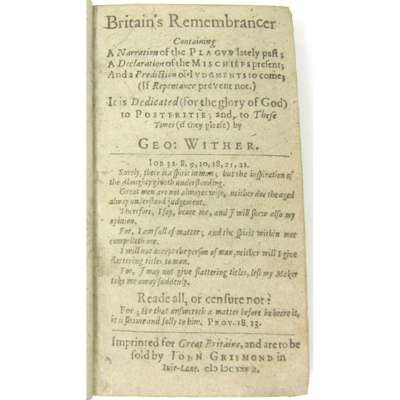 Britain's Remembrancer
Containing
A Narration of the PLAGVE lately past;
A Declaration of the MISCHIEFS present;
And a Prediction of IVDGMENTS to come;
(If Repentance prevent not.)
It is Dedicated (for the glory of God)
to POSTERITIE; and, to These
Times (if they please) by
GEO: WITHER.
IOB 32. 8, 9, 10, 18, 21, 22.
Surely, there is a spirit in man; but the inspiration of
the Almighty giveth understanding.
Great men are not alwayes wise, neither doe the aged
alway understand judgement.
Therefore, I say, heare me, and I will shew also my
opinion.
For, I am full of matter; and the spirit within me
compelleth me.
I will not accept the person of man, neither will I give
flattering titles to man.
For, I may not give flattering titles, lest my Maker
take me away suddenly.
Reade all, or censure not:
For, He that answereth a matter before he heare it,
it is shame and folly to him. PROV. 18. 13.
Imprinted for Great Britaine, and are to be
sold by IOHN GRISMOND in
Ivie-Lane.